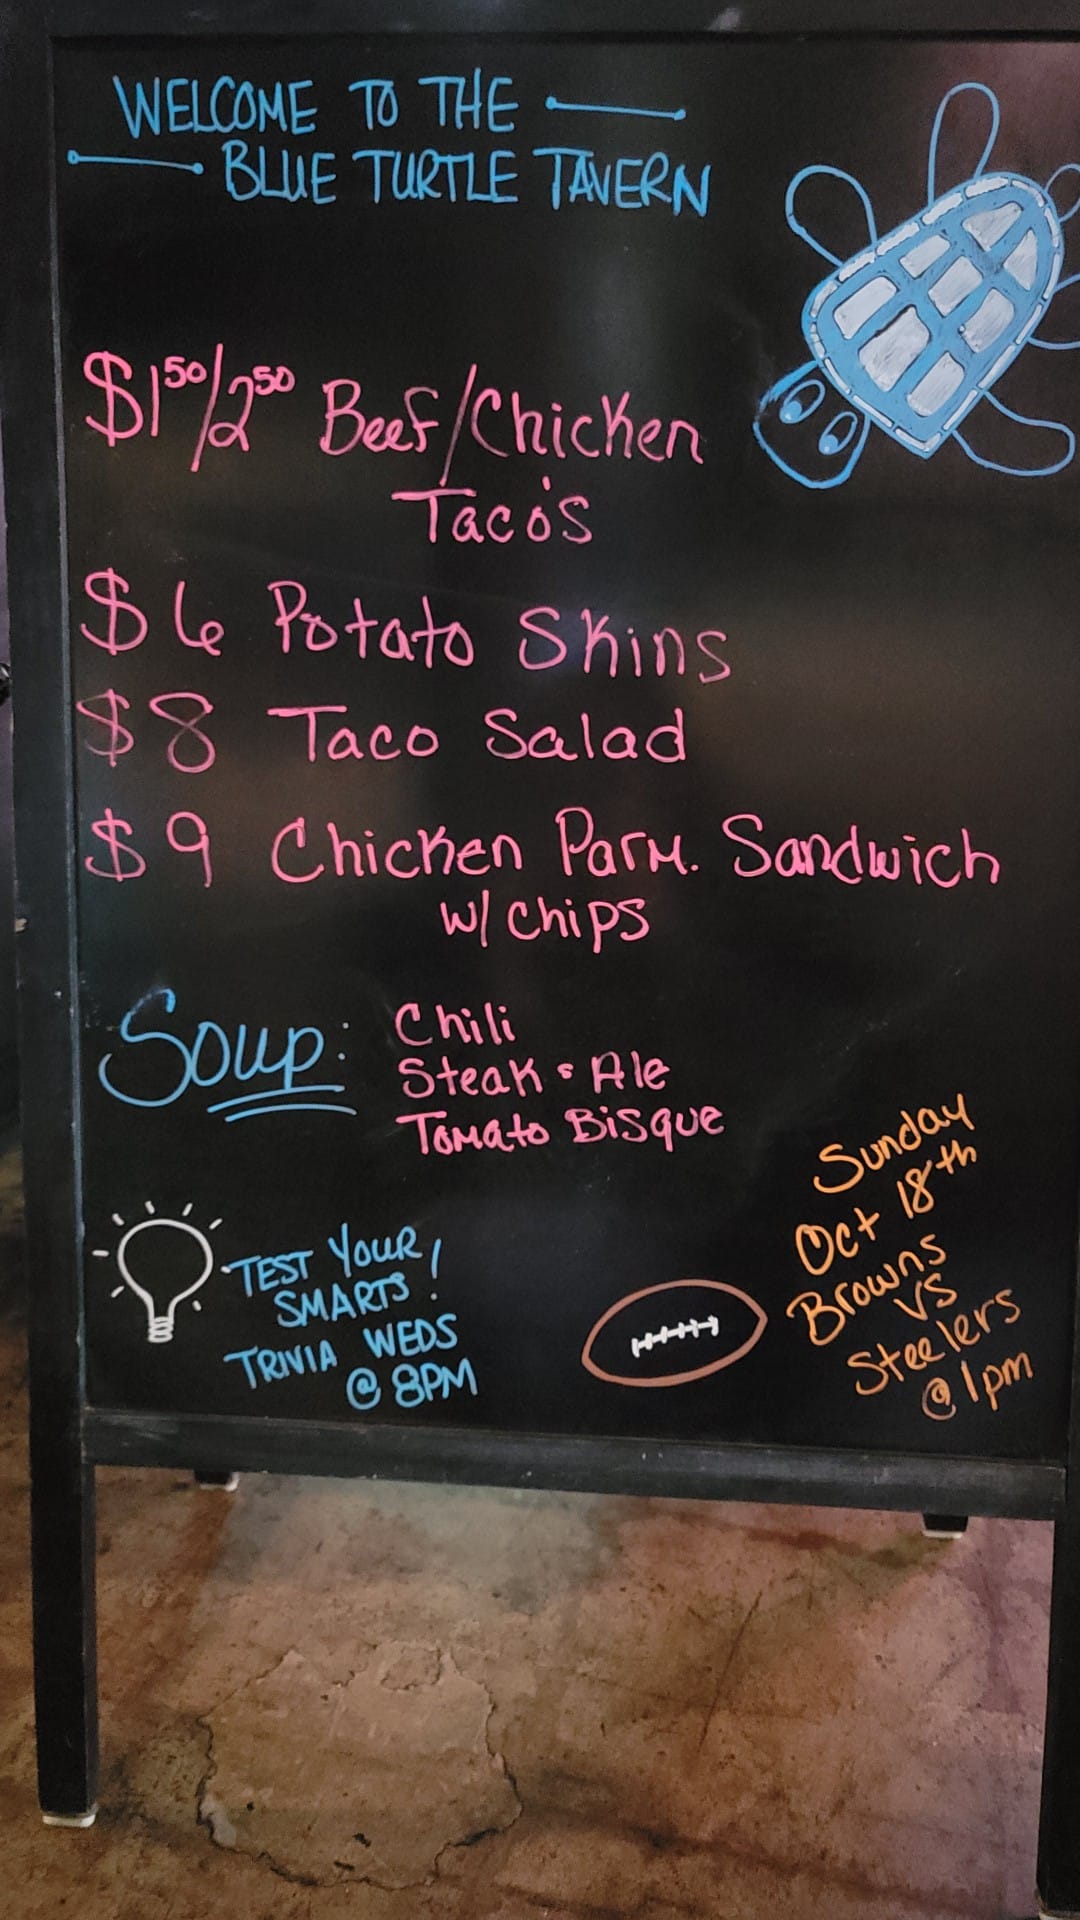 WELCOME TO THE
BLUE TURTLE TAVERN
$1.50/2.50 Beef/Chicken
Taco's
$6 Potato Skins
$8 Taco Salad
$9 Chicken Parm. Sandwich
w/ Chips
Soup: Chili
Steak & Ale
Tomato Bisque
TEST YOUR
SMARTS!
TRIVIA WEDS
@ 8PM
Sunday
Oct 18th
Browns
vs
Steelers
@ 1pm